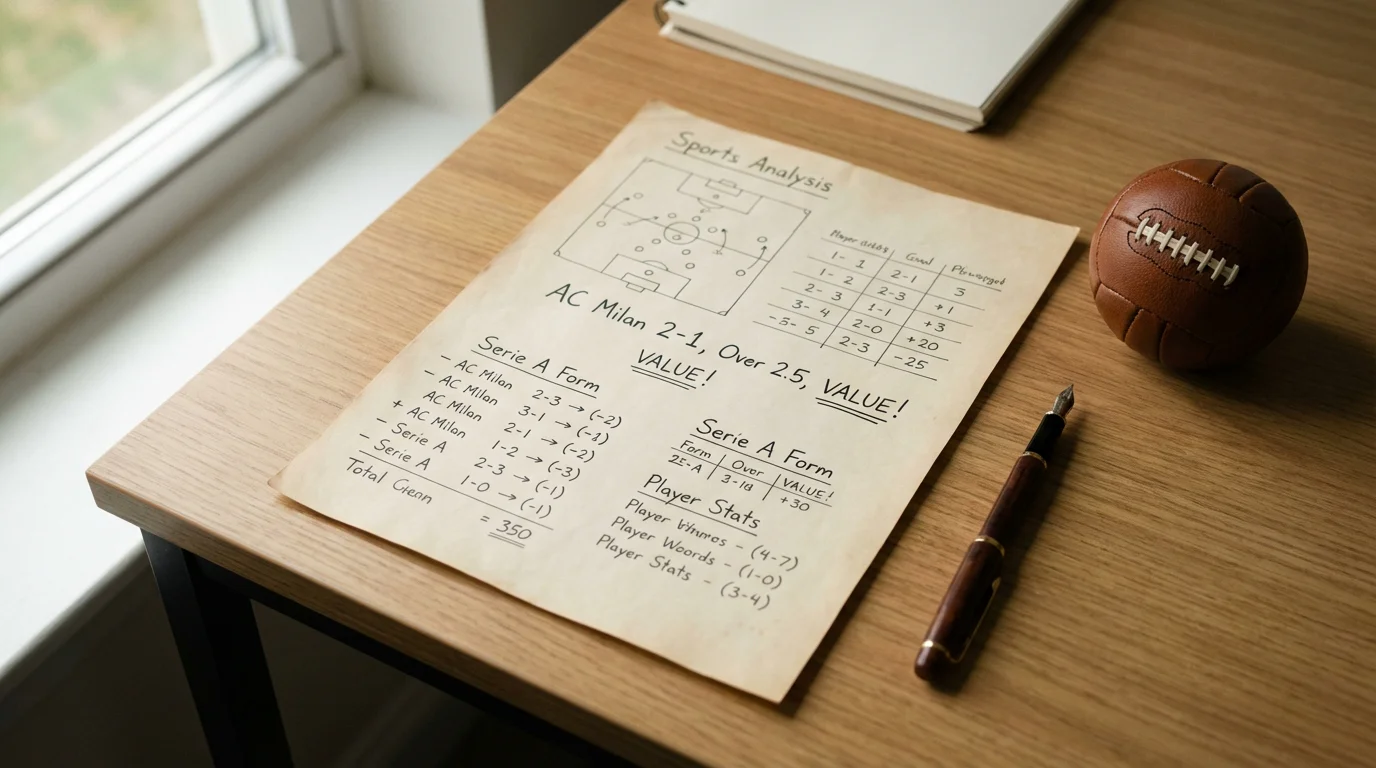 Sports Analysis
Goal
1- 1 2-1 3
1- 2 2-3 +1
2- 3 1-1 +3
3- 4 2-0 +20
-5- 5 2-3 -25
AC Milan 2-1, Over 2.5, VALUE!
VALUE!
Serie A Form
- AC Milan 2-3 → (-2)
- AC Milan 3-1 →
AC Milan 2-1 → (-2)
+ AC Milan 1-2 → (-3)
- Serie A 2-3 → (-1)
- Serie A 1-0 → (-1)
Total
= 350
Serie A Form
Form Over VALUE!
+30
Player Stats
Player - (4-7)
Player Woords - (1-0)
Player Stats - (3-4)